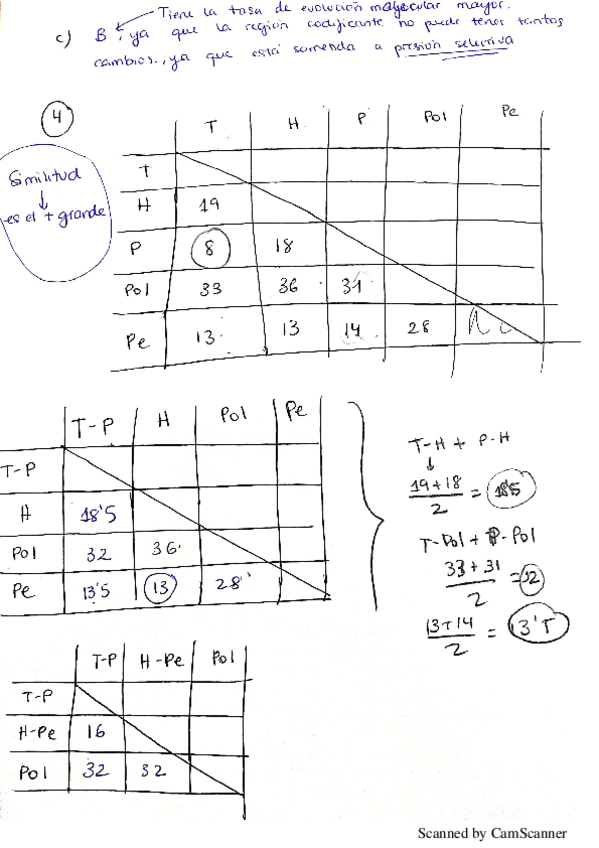 Tiene la tasa de evolución molecular mayor.
c) B, ya que la región codificante no puede tener tantos
cambios, ya que está sometida a presión selectiva
4
T H P Pol Pe
Similitud
↓
es el + grande
T
H 19
P 8 18
Pol 33 36 31
Pe 13 13 14 28
T-P H Pol Pe
T-P
H 18'5
Pol 32 36
Pe 13'5 13 28
T-H + P-H
↓
19+18/2 = 18'5
T-Pol + P-Pol
33+31/2 = 32
13+14/2 = 13'5
T-P H-Pe Pol
T-P
H-Pe 16
Pol 32 32
Scanned by CamScanner